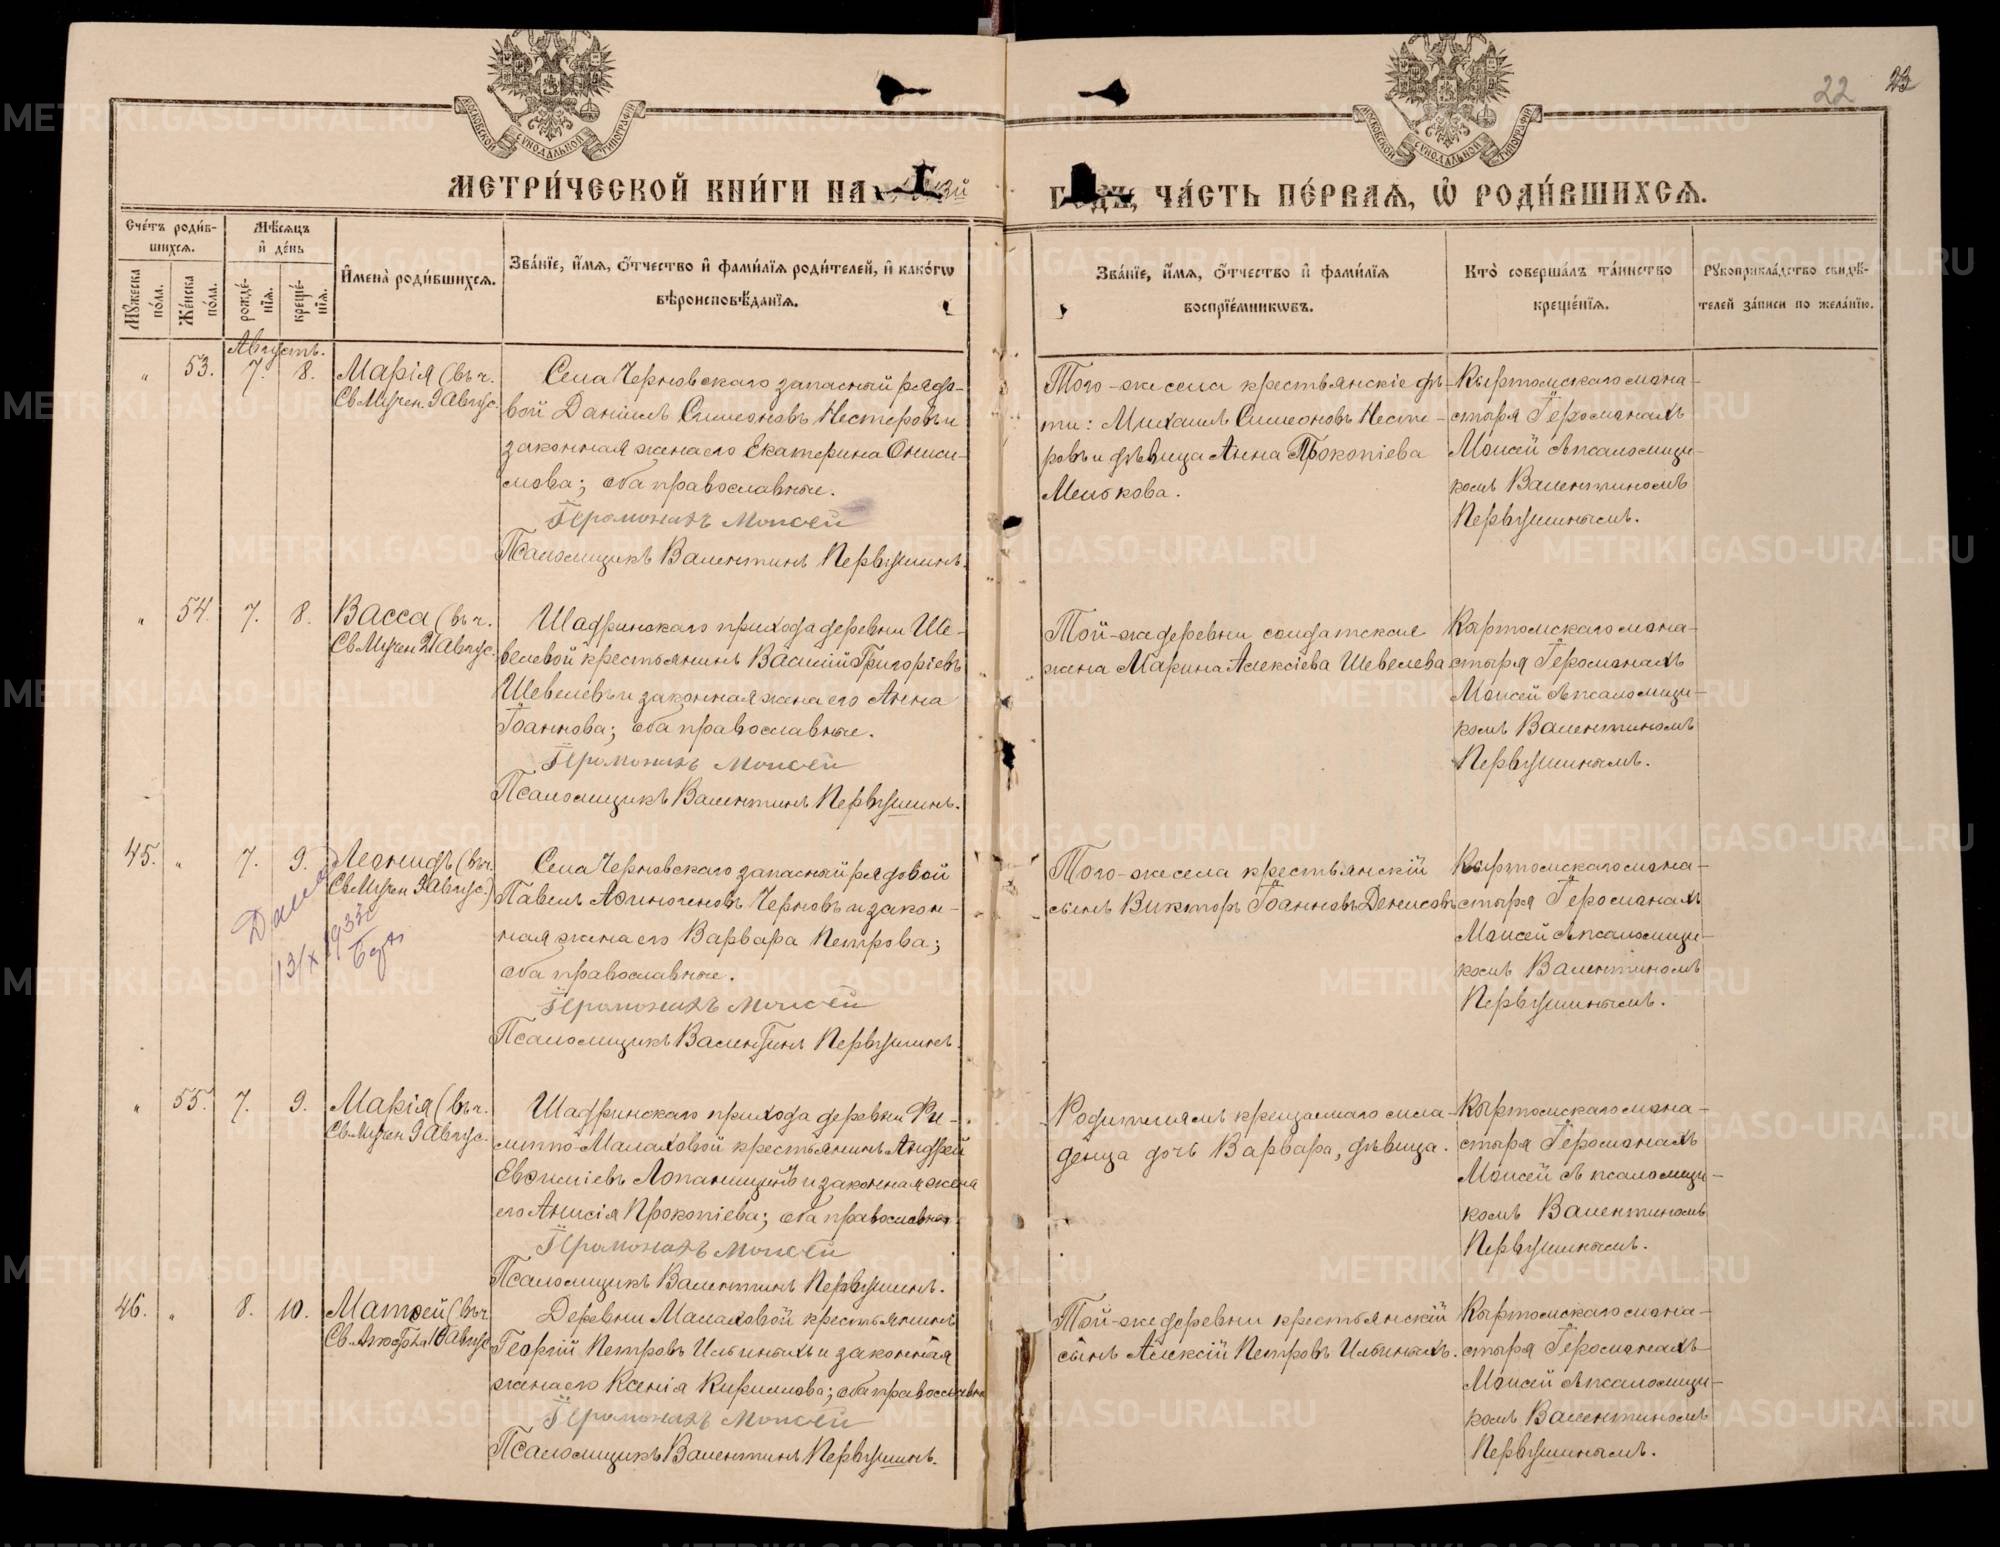 22 23
МОСКОВСКОЙ СѴНОДАЛЬНОЙ ТИПОГРАФІИ
МОСКОВСКОЙ СѴНОДАЛЬНОЙ ТИПОГРАФІИ
МЕТРИ́ЧЕСКОЙ КНИ́ГИ НА
ГОДЪ, ЧА́СТЬ ПЕ́РВАѦ, Ѡ҆ РОДИ́ВШИХСѦ.
Сче́тъ роди́вшихсѧ.
Мꙋ́жеска по́ла.
Же́нска по́ла.
Мѣ́сѧцъ и҆ де́нь
рожде́нїѧ.
креще́нїѧ.
И҆мена̀ роди́вшихсѧ.
Зва́нїе, и҆́мѧ, ѻ҆́тчество и҆ фами́лїѧ роди́телей, и҆ како́гѡ
вѣроисповѣ́данїѧ.
Зва́нїе, и҆́мѧ, ѻ҆́тчество и҆ фами́лїѧ
воспрїе́мникѡвъ.
Кто̀ соверша́лъ та́инство
креще́нїѧ.
Рꙋкоприкла́дство свидѣ́-
телей за́писи по жела́нїю.
Августъ.
" 53. 7. 8.
Марія (въ ч.
Св. Мучен. 9 Авгус.
Села Черновскаго запасный рядо-
вой Даніилъ Симеоновъ Нестеровъ и
законная жена его Екатерина Ониси-
мова; оба православные.
Іеромонахъ Моисей
Псаломщикъ Валентинъ Первушинъ.
Того-же села крестьянскіе дѣ-
ти: Михаилъ Симеоновъ Несте-
ровъ и дѣвица Анна Прокопіева
Мелькова.
Кыртомскаго мона-
стыря Іеромонахъ
Моисей съ псаломщи-
комъ Валентиномъ
Первушинымъ.
" 54. 7. 8.
Васса (въ ч.
Св. Мучен. 21 Авгус.
Шадринскаго прихода деревни Ше-
велевой крестьянинъ Василій Григоріевъ
Шевелевъ и законная жена его Анна
Іоаннова; оба православные.
Іеромонахъ Моисей
Псаломщикъ Валентинъ Первушинъ.
Той-же деревни солдатская
жена Марина Алексіева Шевелева
Кыртомскаго мона-
стыря Іеромонахъ
Моисей съ псаломщи-
комъ Валентиномъ
Первушинымъ.
45. " 7. 9.
Леонидъ (въ ч.
Св. Мучен 9 Авгус.)
13/X 193
Села Черновскаго запасный рядовой
Павелъ Афиногеновъ Черновъ и закон-
ная жена его Варвара Петрова;
оба православные.
Іеромонахъ Моисей
Псаломщикъ Валентинъ Первушинъ.
Того-же села крестьянскій
сынъ Викторъ Іоанновъ Денисовъ
Кыртомскаго мона-
стыря Іеромонахъ
Моисей съ псаломщи-
комъ Валентиномъ
Первушинымъ.
" 55. 7. 9.
Марія (въ ч.
Св. Мучен 9 Авгус.
Шадринскаго прихода деревни Фи-
липпо-Малаховой крестьянинъ Андрей
Евфиміевъ Лопаницынъ и законная жена
его Анисія Прокопіева; оба православные.
Іеромонахъ Моисей
Псаломщикъ Валентинъ Первушинъ.
Родителямъ крещаемаго мла-
денца дочь Варвара, дѣвица.
Кыртомскаго мона-
стыря Іеромонахъ
Моисей съ псаломщи-
комъ Валентиномъ
Первушинымъ.
46. " 8. 10.
Матѳей (въ ч
Св. Апостола 10 Авгус
Деревни Малаховой крестьянинъ
Георгій Петровъ Ильиныхъ и законная
жена его Ксенія Кириллова; оба православны
Іеромонахъ Моисей
Псаломщикъ Валентинъ Первушинъ.
Той-же деревни крестьянскій
сынъ Алексій Петровъ Ильиныхъ.
Кыртомскаго мона-
стыря Іеромонахъ
Моисей съ псаломщи-
комъ Валентиномъ
Первушинымъ.
METRIKI.GASO-URAL.RU